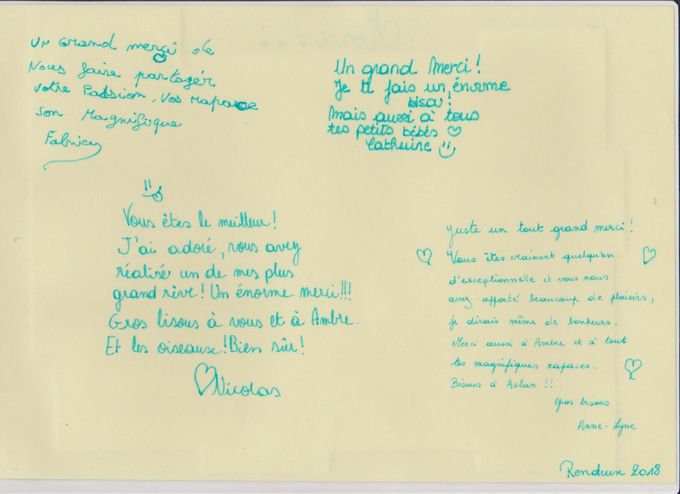 Un Grand merci de
Nous faire partager
Votre Passion, Vos Rapace
son Magnifique
Fabrice
Un grand Merci !
Je te fais un énorme
bisou !
Mais aussi à tous
tes petits bébés ♡
Catherine
Vous êtes le meilleur !
J'ai adoré, vous avez
réalisé un de mes plus
grand rêve ! Un énorme merci !!!
Gros bisous à vous et à Ambre.
Et les oiseaux ! Bien sûr !
♡ Nicolas
Juste un tout grand merci !
Vous êtes vraiment quelqu'un
d'exceptionnelle et vous nous
avez apporté beaucoup de plaisirs,
je dirais même de bonheurs.
Merci aussi à Ambre et à tout
tes magnifiques rapaces.
Bisous à Aslan !!
gros bisous
Anne-Lyne
Rendeux 2018